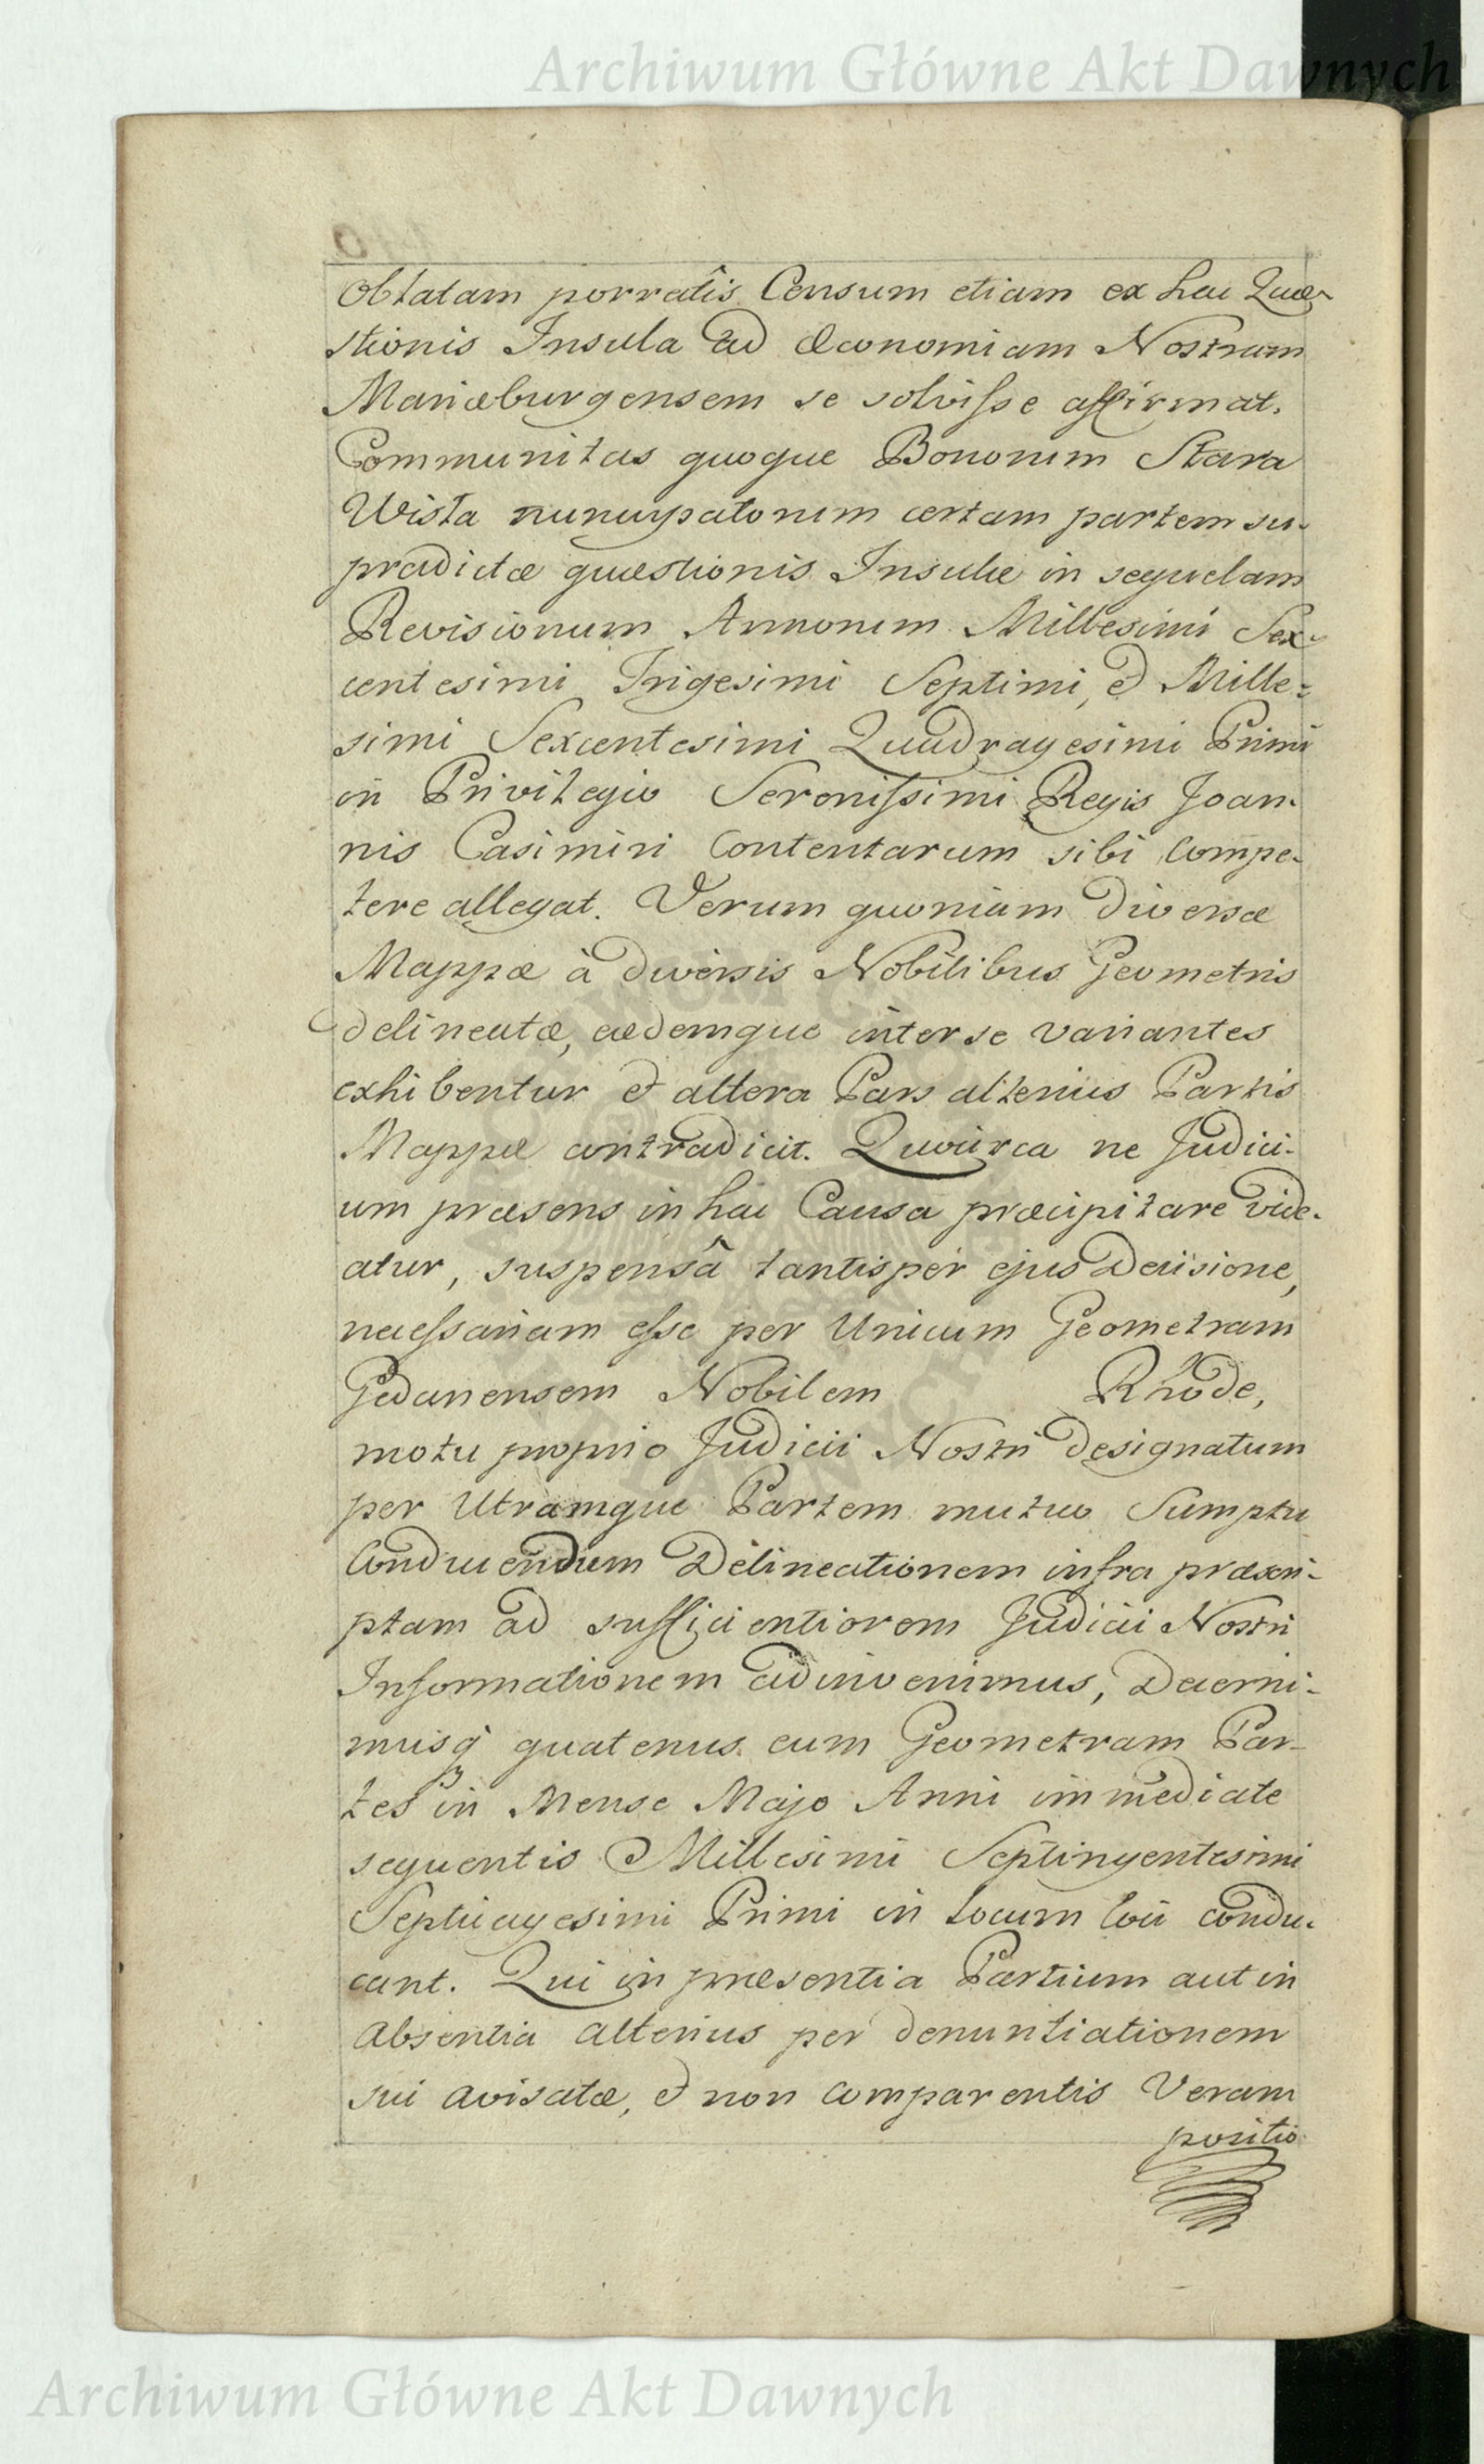 Archiwum Główne Akt Dawnych
oblatam porratîs Censum etiam ex hac Quæ-
stionis Insula ad Œconomiam Nostram
Mariæburgensem se solvisse affirmat.
Communitas quoque Bonorum Stara
Wisla nuncupatorum certam partem su-
pradictæ quæstionis Insulæ in sequelam
Revisionum Annorum Millesimi Sex-
centesimi Trigesimi Septimi, et Mille-
simi Sexcentesimi Quadragesimi Primi
in Privilegio Serenissimi Regis Joan-
nis Casimiri Contentarum sibi Compe-
tere allegat. Verum quoniam diversæ
Mappæ à diversis Nobilibus Geometris
delineatæ, eædemque inter se variantes
exhibentur et altera Pars alterius Partis
Mappæ contradicit. Quocirca ne Judici-
um præsens in hac Causa præcipitare vide-
atur, suspensâ tantisper ejus Decisione,
necessariam esse per Unicum Geometram
Gedanensem Nobilem Rhode,
motu proprio Judicii Nostri designatum
per Utramque Partem mutuo Sumptu
Conducendum Delineationem infra præscri-
ptam ad sufficientiorem Judicii Nostri
Informationem adinvenimus, Decerni-
musq quatenus eum Geometram Par-
tes in Mense Majo Anni immediate
sequentis Millesimi Septingentesimi
Septuagesimi Primi in locum loci condu-
cant. Qui in præsentia Partium aut in
absentia alterius per denuntiationem
sui avisatæ, et non comparentis Veram
positio
Archiwum Główne Akt Dawnych